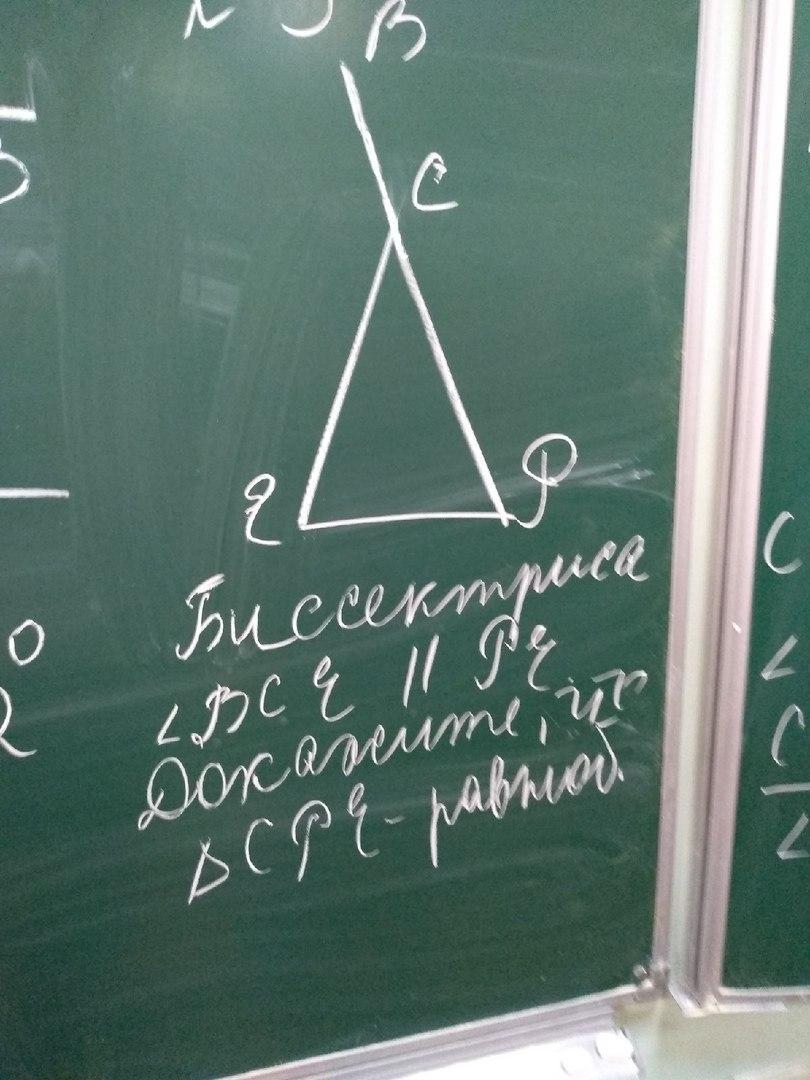 B
C
E
P
Биссектриса
∠BCE || PE
Докажите, что
Δ CPE - равноб.